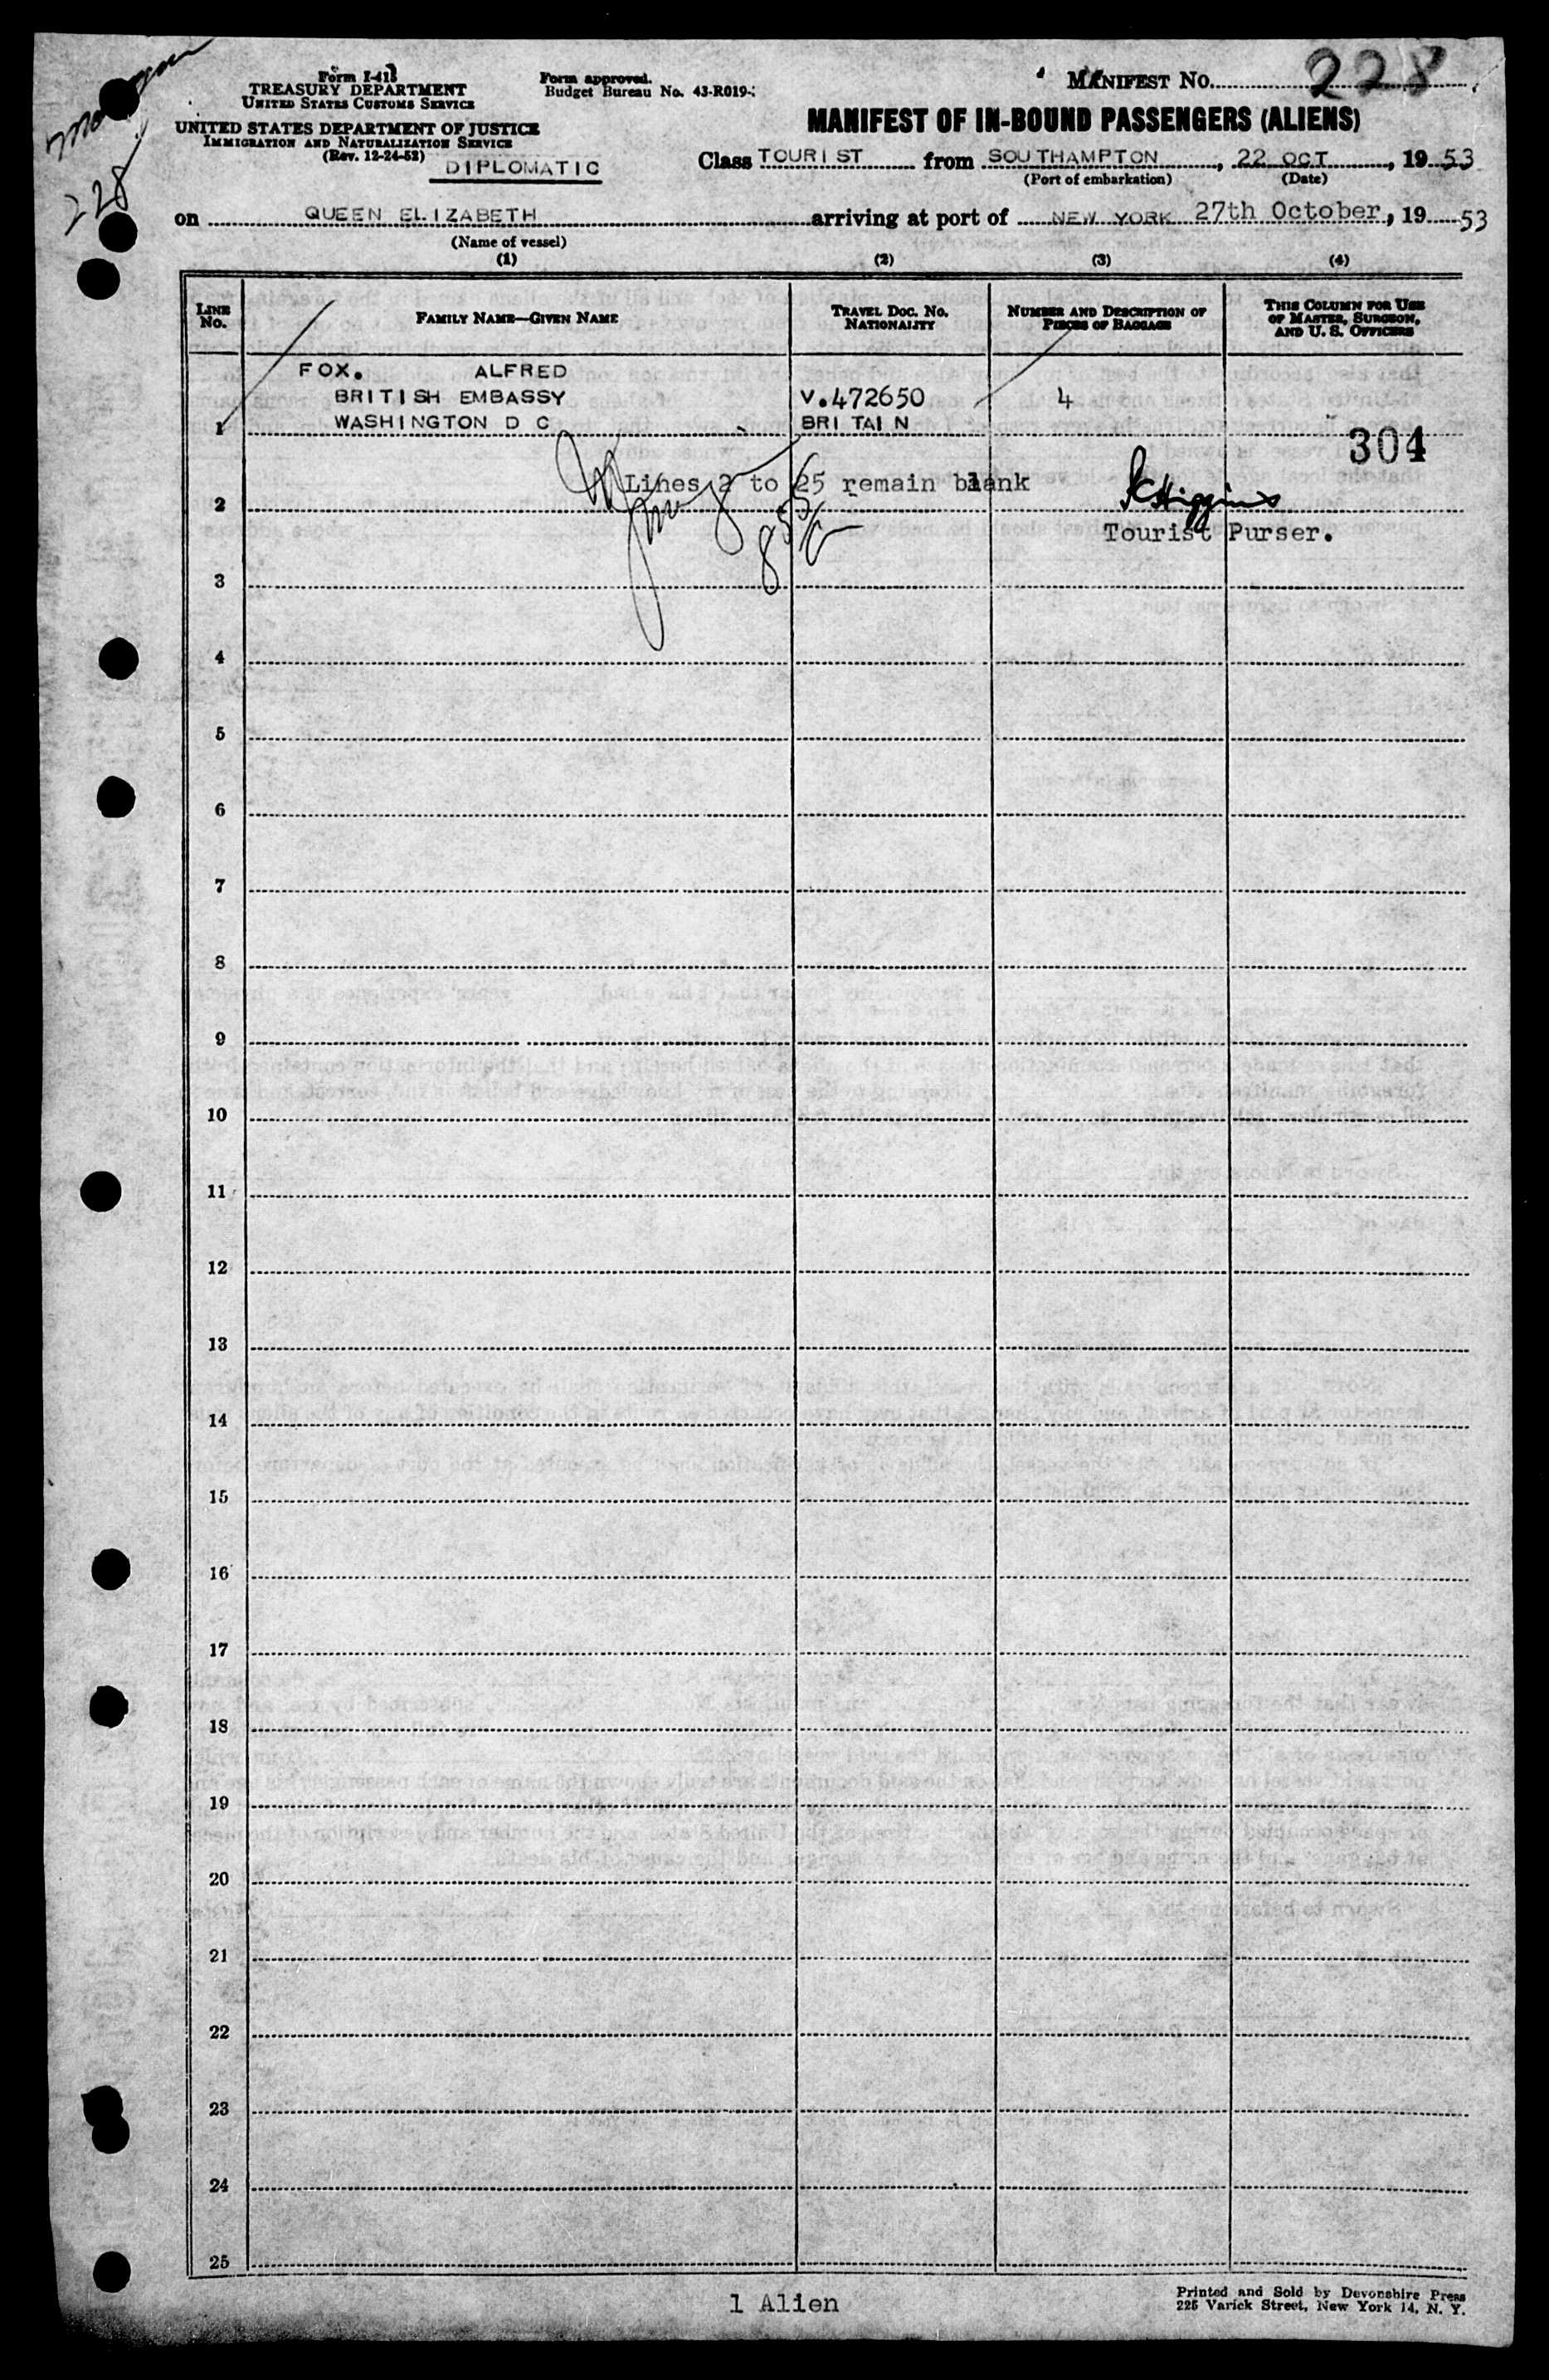 228
Form I-418
TREASURY DEPARTMENT
UNITED STATES CUSTOMS SERVICE
UNITED STATES DEPARTMENT OF JUSTICE
IMMIGRATION AND NATURALIZATION SERVICE
(Rev. 12-24-52)
DIPLOMATIC
Form approved.
Budget Bureau No. 43-R019-
MANIFEST No. 228
MANIFEST OF IN-BOUND PASSENGERS (ALIENS)
Class TOURIST from SOUTHAMPTON, 22 OCT, 1953
(Port of embarkation) (Date)
on QUEEN ELIZABETH arriving at port of NEW YORK 27th October, 19 53
(Name of vessel)
(1) (2) (3) (4)
LINE No. FAMILY NAME—GIVEN NAME TRAVEL DOC. NO. NATIONALITY NUMBER AND DESCRIPTION OF PIECES OF BAGGAGE THIS COLUMN FOR USE OF MASTER, SURGEON, AND U. S. OFFICERS
FOX. ALFRED
BRITISH EMBASSY V.472650 4
1 WASHINGTON D C BRITAIN
304
Lines 2 to 25 remain blank
2
Tourist Purser.
3
4
5
6
7
8
9
10
11
12
13
14
15
16
17
18
19
20
21
22
23
24
25
1 Alien
Printed and Sold by Devonshire Press
225 Varick Street, New York 14, N. Y.